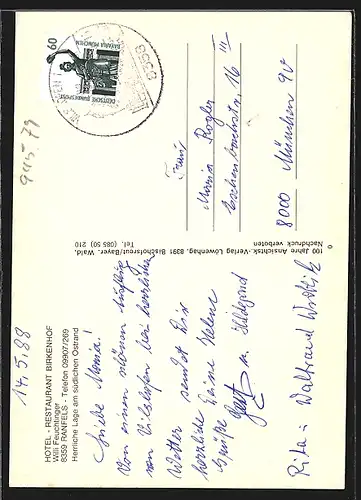 14.5.88
HOTEL - RESTAURANT BIRKENHOF
Willi Feuchtinger
8359 RANFELS - Telefon 09907/269
Herrliche Lage am südlichen Ostrand
Liebe Maria!
Von einem schönen Ausflug
von Vilshofen bei herrlichem
Wetter sendet Dir
herzliche Deine Helene
Grüße
u. Hildegard
Rita + Waltraud
100 Jahre Ansichtsk.-Verlag Löwenhag, 8391 Bischofsreut/Bayer. Wald.
Nachdruck verboten
Tel. (085 50) 210
60
DEUTSCHE BUNDESPOST
BAVARIA MÜNCHEN
8358
Frau
Maria Rogler
Eschenbachstr. 16 III
8000 München 90